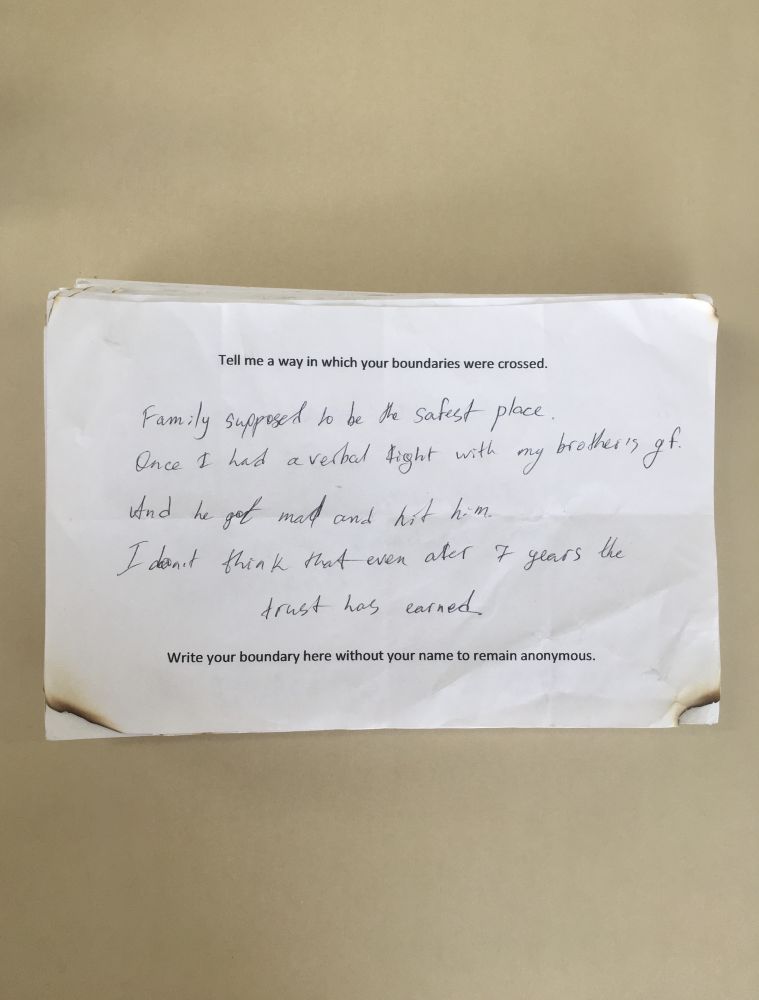 Tell me a way in which your boundaries were crossed.
Family supposed to be the safest place.
Once I had a verbal fight with my brother's gf.
And he got mad and hit him.
I don't think that even ater 7 years the
trust has earned.
Write your boundary here without your name to remain anonymous.